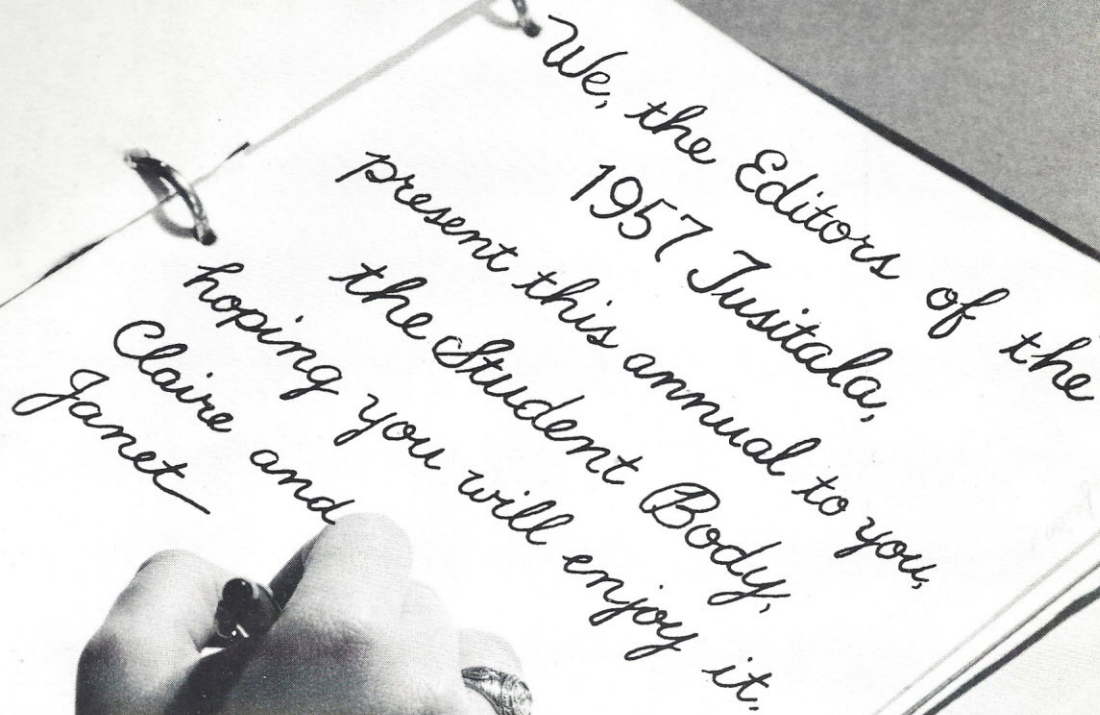 We, the Editors of the
1957 Tusitala,
present this annual to you,
the Student Body,
hoping you will enjoy it.
Claire and
Janet